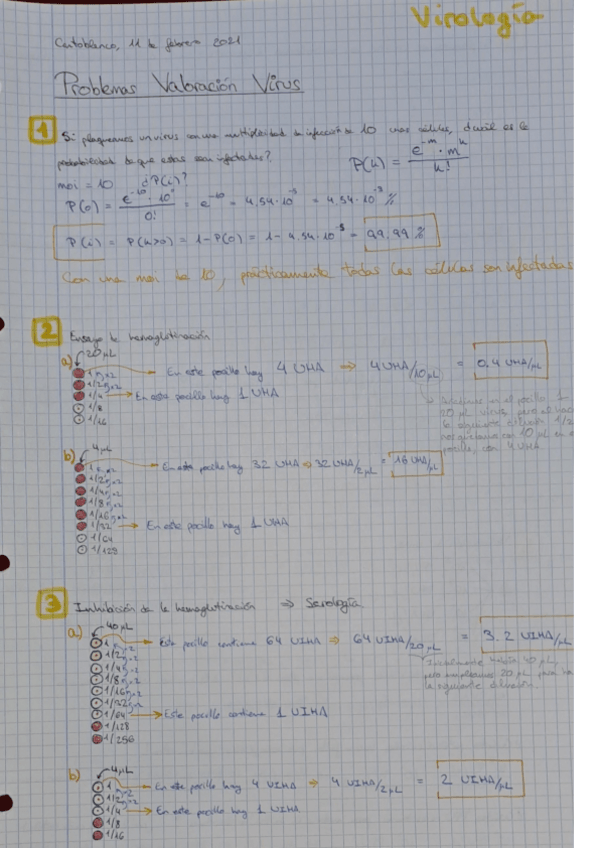 Virología
Cantoblanco, 11 de febrero 2021
Problemas Valoración Virus
1 Si plaqueamos un virus con una multiplicidad de infección de 10 unas células, ¿cuál es la
probabilidad de que estas sean infectadas?
P(k) = e^-m · m^k / k!
moi = 10 ¿P(i)?
P(0) = e^-10 · 10^0 / 0! = e^-10 = 4,54·10^-5 = 4,54·10^-3 %
P(i) = P(k>0) = 1-P(0) = 1- 4,54·10^-5 = 99,99 %
Con una moi de 10, prácticamente todas las células son infectadas
2 Ensayo de hemaglutinación
a) 20 µL
1 En este pocillo hay 4 UHA ⇒ 4 UHA/10 µL = 0,4 UHA/µL
1/2
1/4 → En este pocillo hay 1 UHA
1/8
1/16
b) 4 µL
1 En este pocillo hay 32 UHA ⇒ 32 UHA/2 µL = 16 UHA/µL
1/2
1/4
1/8
1/16
1/32 → En este pocillo hay 1 UHA
1/64
1/128
3 Inhibición de la hemaglutinación ⇒ Serología
a) 40 µL
1 Este pocillo contiene 64 UIHA ⇒ 64 UIHA/20 µL = 3.2 UIHA/µL
1/2
1/4
1/8
1/16
1/32
Inicialmente había 40 µL,
pero 20 µL para
la siguiente dilución.
1/64 → Este pocillo contiene 1 UIHA
1/128
1/256
b) 4 µL
1 En este pocillo hay 4 UIHA ⇒ 4 UIHA/2 µL = 2 UIHA/µL
1/2
1/4 → En este pocillo hay 1 UIHA
1/8
1/16